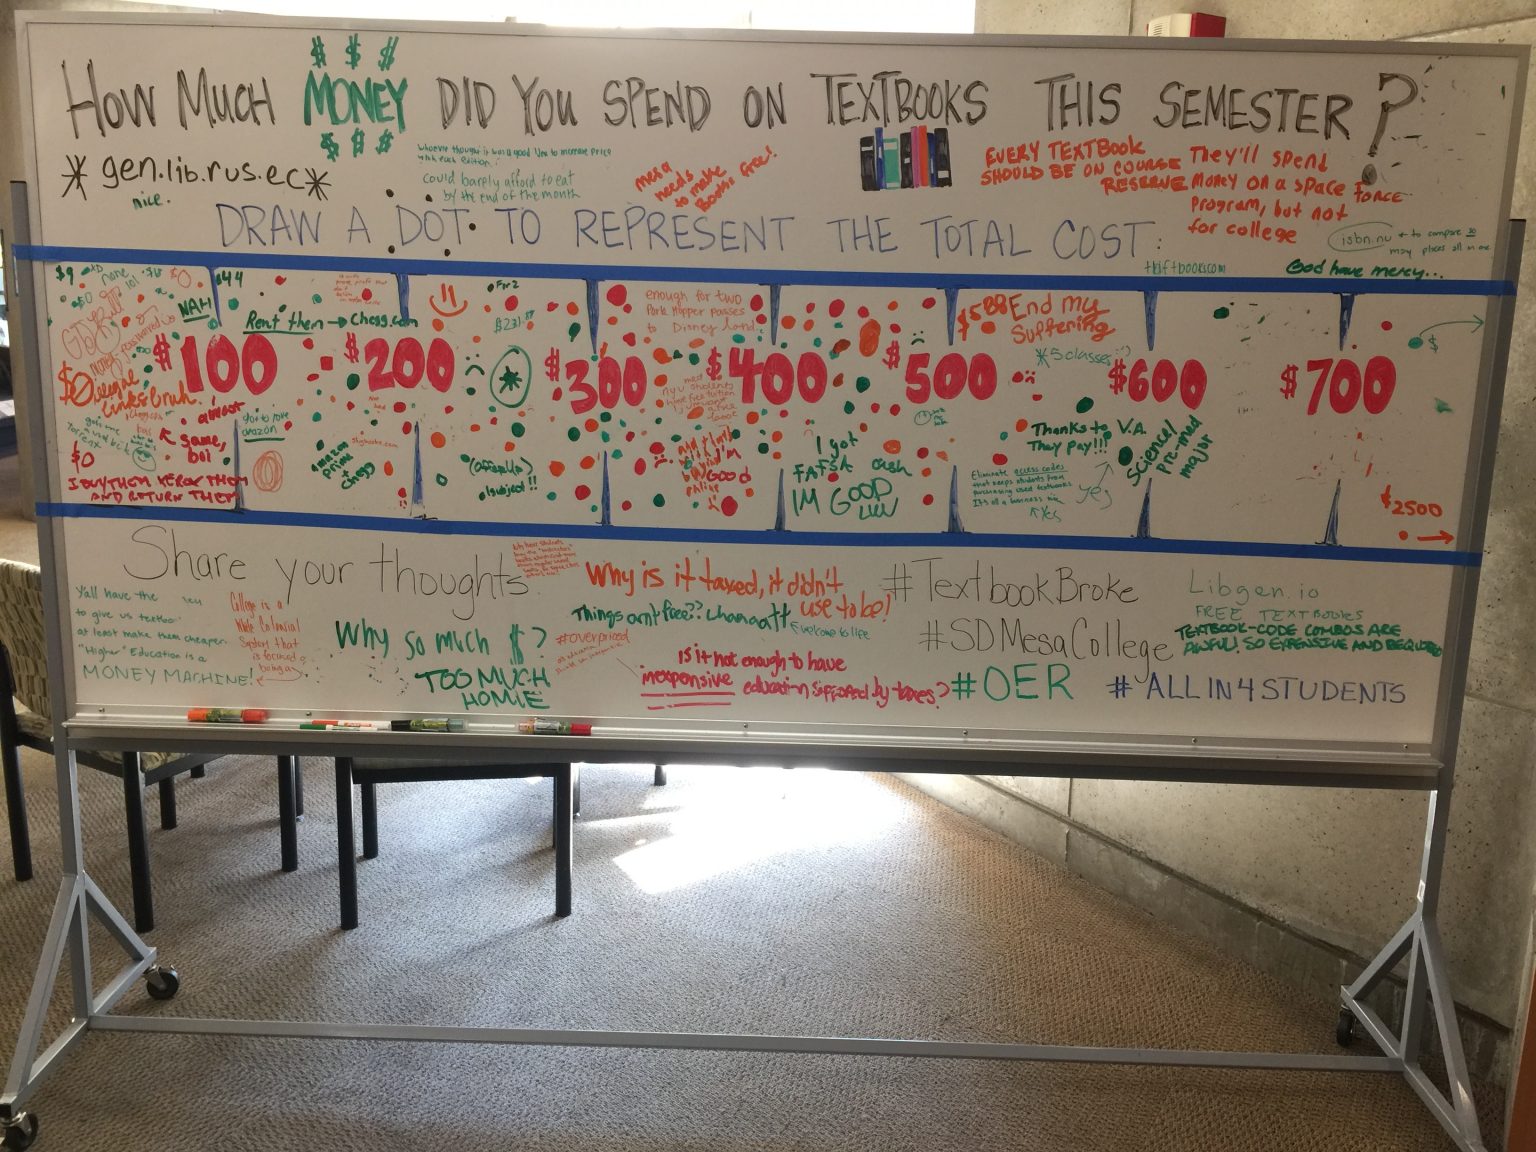 $ $ $
HOW MUCH MONEY DID YOU SPEND ON TEXTBOOKS THIS SEMESTER?
$ $ $
* gen.lib.rus.ec *
nice.
Whoever thought it was a good idea to increase price
with each edition?
could barely afford to eat
by the end of the month
mesa
needs
to make
Books free!
EVERY TEXTBOOK
SHOULD BE ON COURSE
RESERVE
They'll spend
money on a space force
program, but not
for college
isbn.nu ← to compare
many places all in one
DRAW A DOT TO REPRESENT THE TOTAL COST:
thriftbooks.com
God have mercy...
$9
none
$0
$44
NAH
Rent them → Chegg.com
$100
$0 illegal
links bruh.
almost
same,
boi
$0
I BUY THEM XEROX THEM
AND RETURN THEM
go to
amazon
$200
amazon
prime
Chegg
For 2
$231
*
1 subject!!
$300
enough for two
Park Hopper passes
to Disney land
$400
nyu students
have free tuition
I got
FAFSA cash
IM GOOD
LUV
$500
$588 End my
suffering
* 5 classes :)
$600
Thanks to V.A.
They pay!!!
Eliminate access codes
that keeps students from
purchasing used textbooks
It's all a business
yes
Yes
Science/
Pre-med
major
$700
$
$2500
Share your thoughts
Yall have the
to give us textbo
at least make them cheaper.
"Higher" Education is a
MONEY MACHINE!
College is a
Colonial
System that
is focused
being a
Why so much $?
TOO MUCH
HOMIE
Why is it taxed, it didn't
use to be!
Things arnt free?? Whaaaatt
welcome to life
#overpriced
Is it not enough to have
inexpensive education supported by taxes?
#TextbookBroke
#SDMesaCollege
#OER
#ALLIN4STUDENTS
Libgen.io
FREE TEXTBOOKS
TEXTBOOK-CODE COMBOS ARE
AWFUL! SO EXPENSIVE AND REQUIRED